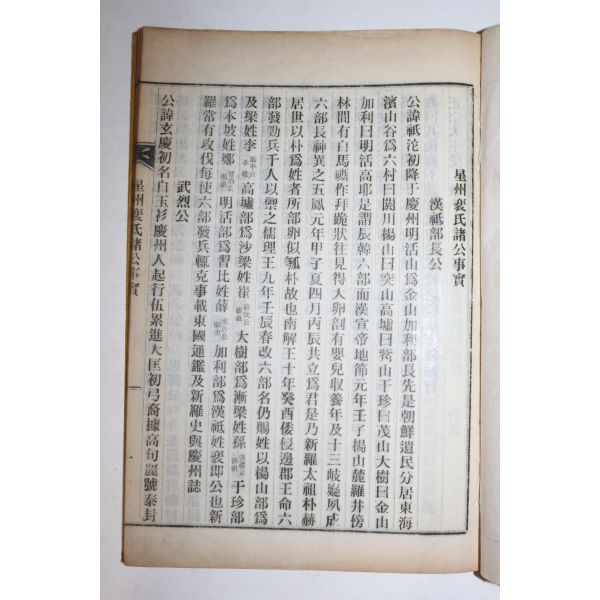 星州裵氏諸公事實
漢祗部長公
公諱祗沱初降于慶州明活山爲金山加利部長先是朝鮮遺民分居東海
濱山谷爲六村曰閼川楊山曰突山高墟曰觜山干珍曰茂山大樹曰金山
加利曰明活高耶是謂辰韓六部而漢宣帝地節元年壬子楊山麓羅井傍
林間有白馬嘶作拜跪狀往見得大卵剖有嬰兒收養年及十三岐嶷夙成
六部長神異之五鳳元年甲子夏四月丙辰共立爲君是乃新羅太祖朴赫
居世以朴爲姓者所部卵似瓠朴故也南解王十年癸酉倭侵邊郡王命六
部發勁兵千人以禦之儒理王九年壬辰春改六部名仍賜姓以楊山部爲
及梁姓李 高墟部爲沙梁姓崔 大樹部爲漸梁姓孫 于珍部
爲本坡姓鄭 明活部爲習比姓薛 加利部爲漢祗姓裵即公也新
羅常有攻伐每使六部發兵輒克事載東國通鑑及新羅史與慶州誌
武烈公
公諱玄慶初名白玉衫慶州人起行伍累進大匡初弓裔據高句麗號泰封
星州裵氏諸公事實
一